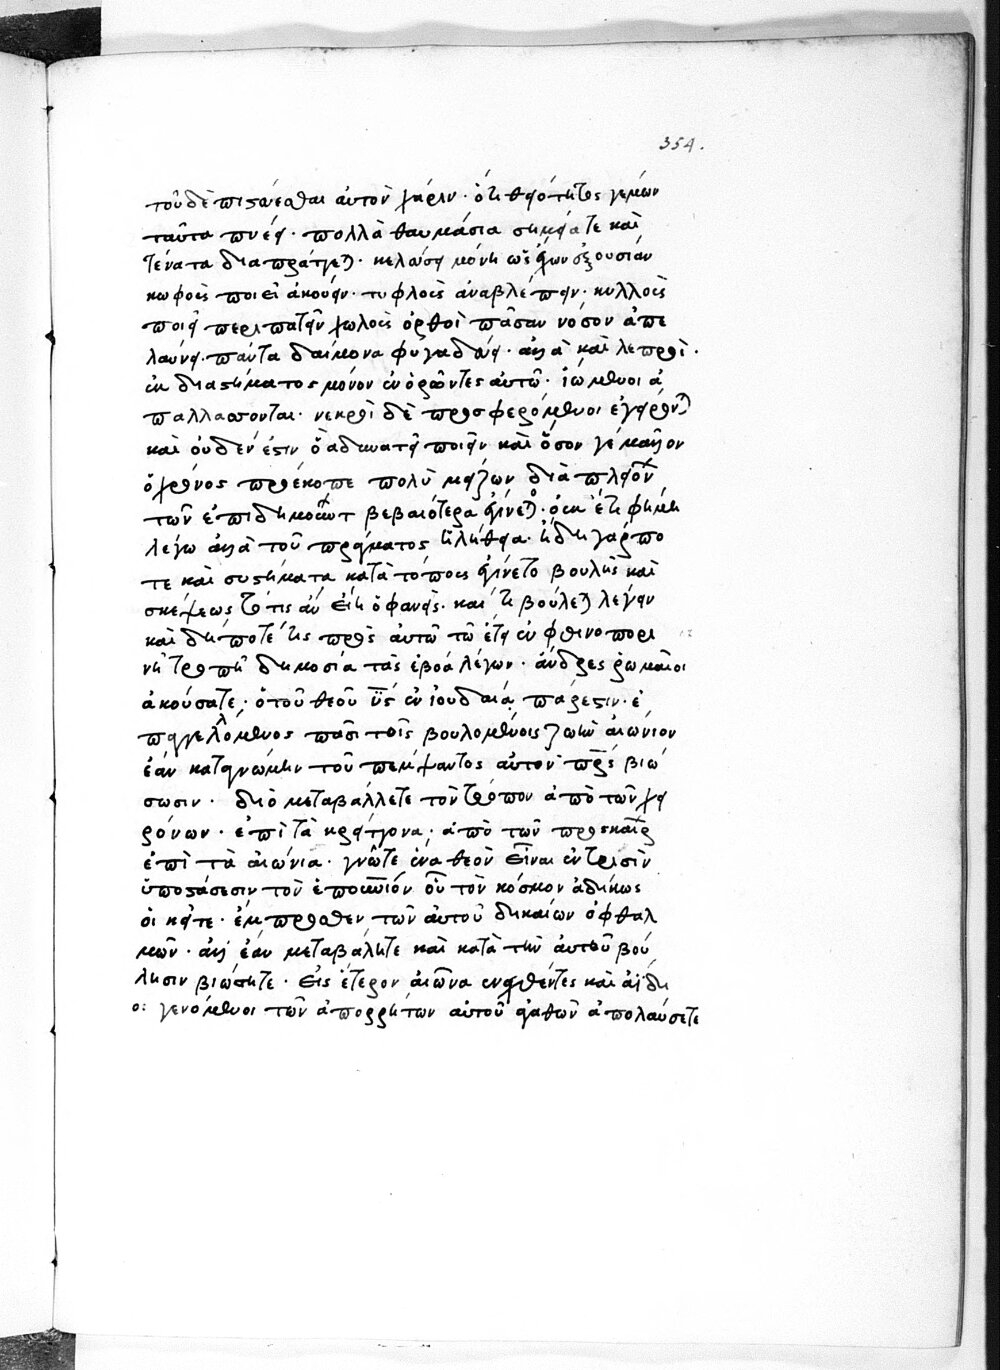 354.
τοῦ δὲ πιστεύεσθαι αὐτὸν χάριν· ὅτι θειότητος γέμων
ταῦτα πνέει· πολλὰ θαυμάσια σημεῖά τε καὶ
τέρατα διαπράττεται· κελεύσει μόνῃ ὡς ἔχων ἐξουσίαν
κωφοὺς ποιεῖ ἀκούειν· τυφλοὺς ἀναβλέπειν· κυλλοὺς
ποιεῖ περιπατεῖν χωλοὺς ὀρθοῖ πᾶσαν νόσον ἀπε
λαύνει· πάντα δαίμονα φυγαδεύει· ἀλλὰ καὶ λεπροὶ·
ἐκ διαστήματος μόνον ἐνορῶντες αὐτῷ· ἰώμενοι ἀ
παλλάσσονται· νεκροὶ δὲ προσφερόμενοι ἐγείρονται
καὶ οὐδέν ἐστιν ὃ ἀδυνατεῖ ποιεῖν καὶ ὅσον γε μᾶλλον
ὁ χρόνος προέκοπτε πολὺ μείζων διὰ πλειόνων
τῶν ἐπιδημούντων βεβαιότερα ἐγίνετο· οὐκ ἔτι φήμη
λέγω ἀλλὰ τοῦ πράγματος ἡ ἀλήθεια· ἤδη γάρ πο
τε καὶ συστήματα κατὰ τόπους ἐγίνετο βουλῆς καὶ
σκέψεως τὸ τίς ἂν εἴη ὁ φανεὶς· καὶ τί βούλεται λέγειν
καὶ δήποτέ τις πρὸς αὐτῷ τῷ ἔτει ἐν φθινοπορι
νῇ τροπῇ δημοσίᾳ στὰς ἐβόα λέγων· ἄνδρες ῥωμαῖοι
ἀκούσατε· ὁ τοῦ θεοῦ υἱὸς ἐν ἰουδαίᾳ πάρεστιν· ἐ
παγγελλόμενος πᾶσι τοῖς βουλομένοις ζωὴν αἰώνιον
ἐὰν κατὰ γνώμην τοῦ πέμψαντος αὐτὸν πατρὸς βιώ
σωσιν· διὸ μεταβάλλετε τὸν τρόπον ἀπὸ τῶν χει
ρόνων· ἐπὶ τὰ κρείττονα· ἀπὸ τῶν προσκαίρων
ἐπὶ τὰ αἰώνια· γνῶτε ἕνα θεὸν εἶναι ἐν τρισὶν
ὑποστάσεσιν τὸν ἐπουράνιον οὗ τὸν κόσμον ἀδίκως
οἰκεῖτε· ἔμπροσθεν τῶν αὐτοῦ δικαίων ὀφθαλ
μῶν· ἀλλ' ἐὰν μεταβάλητε καὶ κατὰ τὴν αὐτοῦ βού
λησιν βιώσητε· εἰς ἕτερον αἰῶνα ἐνεχθέντες καὶ ἀΐδι
οι γενόμενοι τῶν ἀπορρήτων αὐτοῦ ἀγαθῶν ἀπολαύσετε